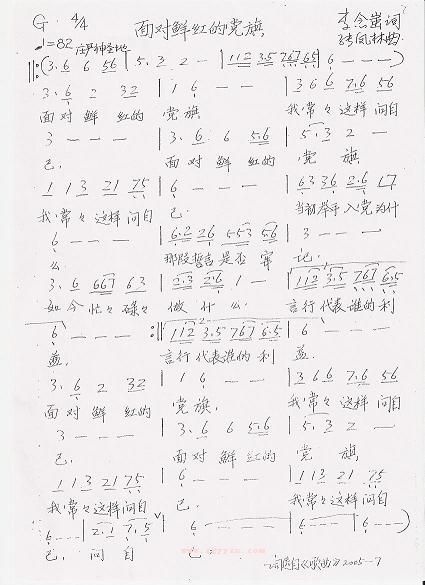 G 4/4 面对鲜红的党旗 李念岗词
♩=82 庄严神圣地 张凤林曲
‖:(3·6 6 56 | 5·3 2 - | 112 3·5 767 6·5 | 6 - - -)
3·6 2 32 | 1 6 - - | 3 6 6 7·6 56
面对鲜红的 党旗 我常々这样问自
3 - - - | 3·6 6 5·6 | 5·3 2 -
己. 面对鲜红的 党旗
1 1 3 21 75 | 6 - - - | 63 36 2·6 17
我常々这样问自 己. 当初举手入党为什
6 - - - | 6·2 26 553 56 | 3 - - -
么. 那段誓言是否牢 记.
3·6 667 63 | 2·3 2·6 1 - | 112 3·5 767 6·5
如今忙々碌々 做什么. 言行代表谁的利
6 - - - :‖ 112 3·5 767 6·5 | 6 - - -
益. 言行代表谁的利 益.
3·6 2 32 | 1 6 - - | 3 6 6 7·6 56
面对鲜红的 党旗, 我常々这样问自
3 - - - | 3·6 6 5·6 | 5·3 2 -
己. 面对鲜红的 党旗
1 1 3 21 75 | 6 - - - | 1 1 3 21 75
我常々这样问自 己. 我常々这样问自
6 - - - | 2·1 7·5 | 6 - - - | 6 - - - | 6 - - -)
己, 问自 己.
词选自《歌曲》2005-7